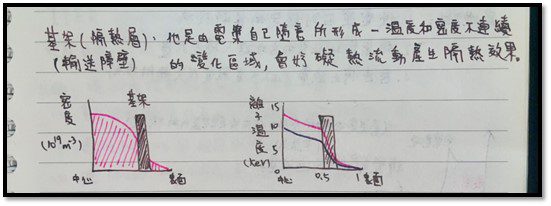 基架(隔熱層):他是由電漿自己隨意所形成一溫度和密度不連續
(輸送障壁) 的變化區域,會妨礙熱流動產生隔熱效果。
密度
(10¹⁹m⁻³)
基架
中心
表面
離子溫度
(keV)
15
10
5
0
中心
0.5
1
表面